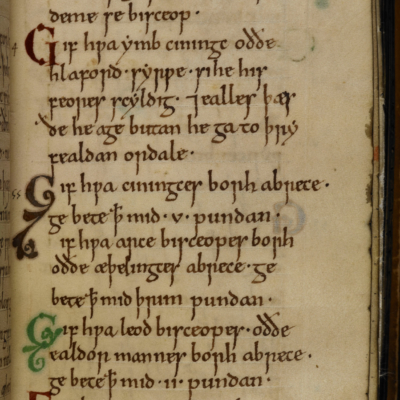 deme se bisceop ·
Gif hƿa ymb cininge oððe
hlaford · syrƿe · si he his
feores scyldig · ⁊ ealles þæs
ðe he age butan he ga to þry
fealdan ordale ·
Gif hƿa cininges borh abrece ·
ge bete ꝥ mid · v · pundan ·
Gif hƿa arce bisceopes borh
oððe æþelinges abrece · ge
bete ꝥ mid þrim pundan ·
Gif hƿa leod bisceopes · oððe
ealdor mannes borh abrece ·
ge bete ꝥ mid · ii · pundan ·